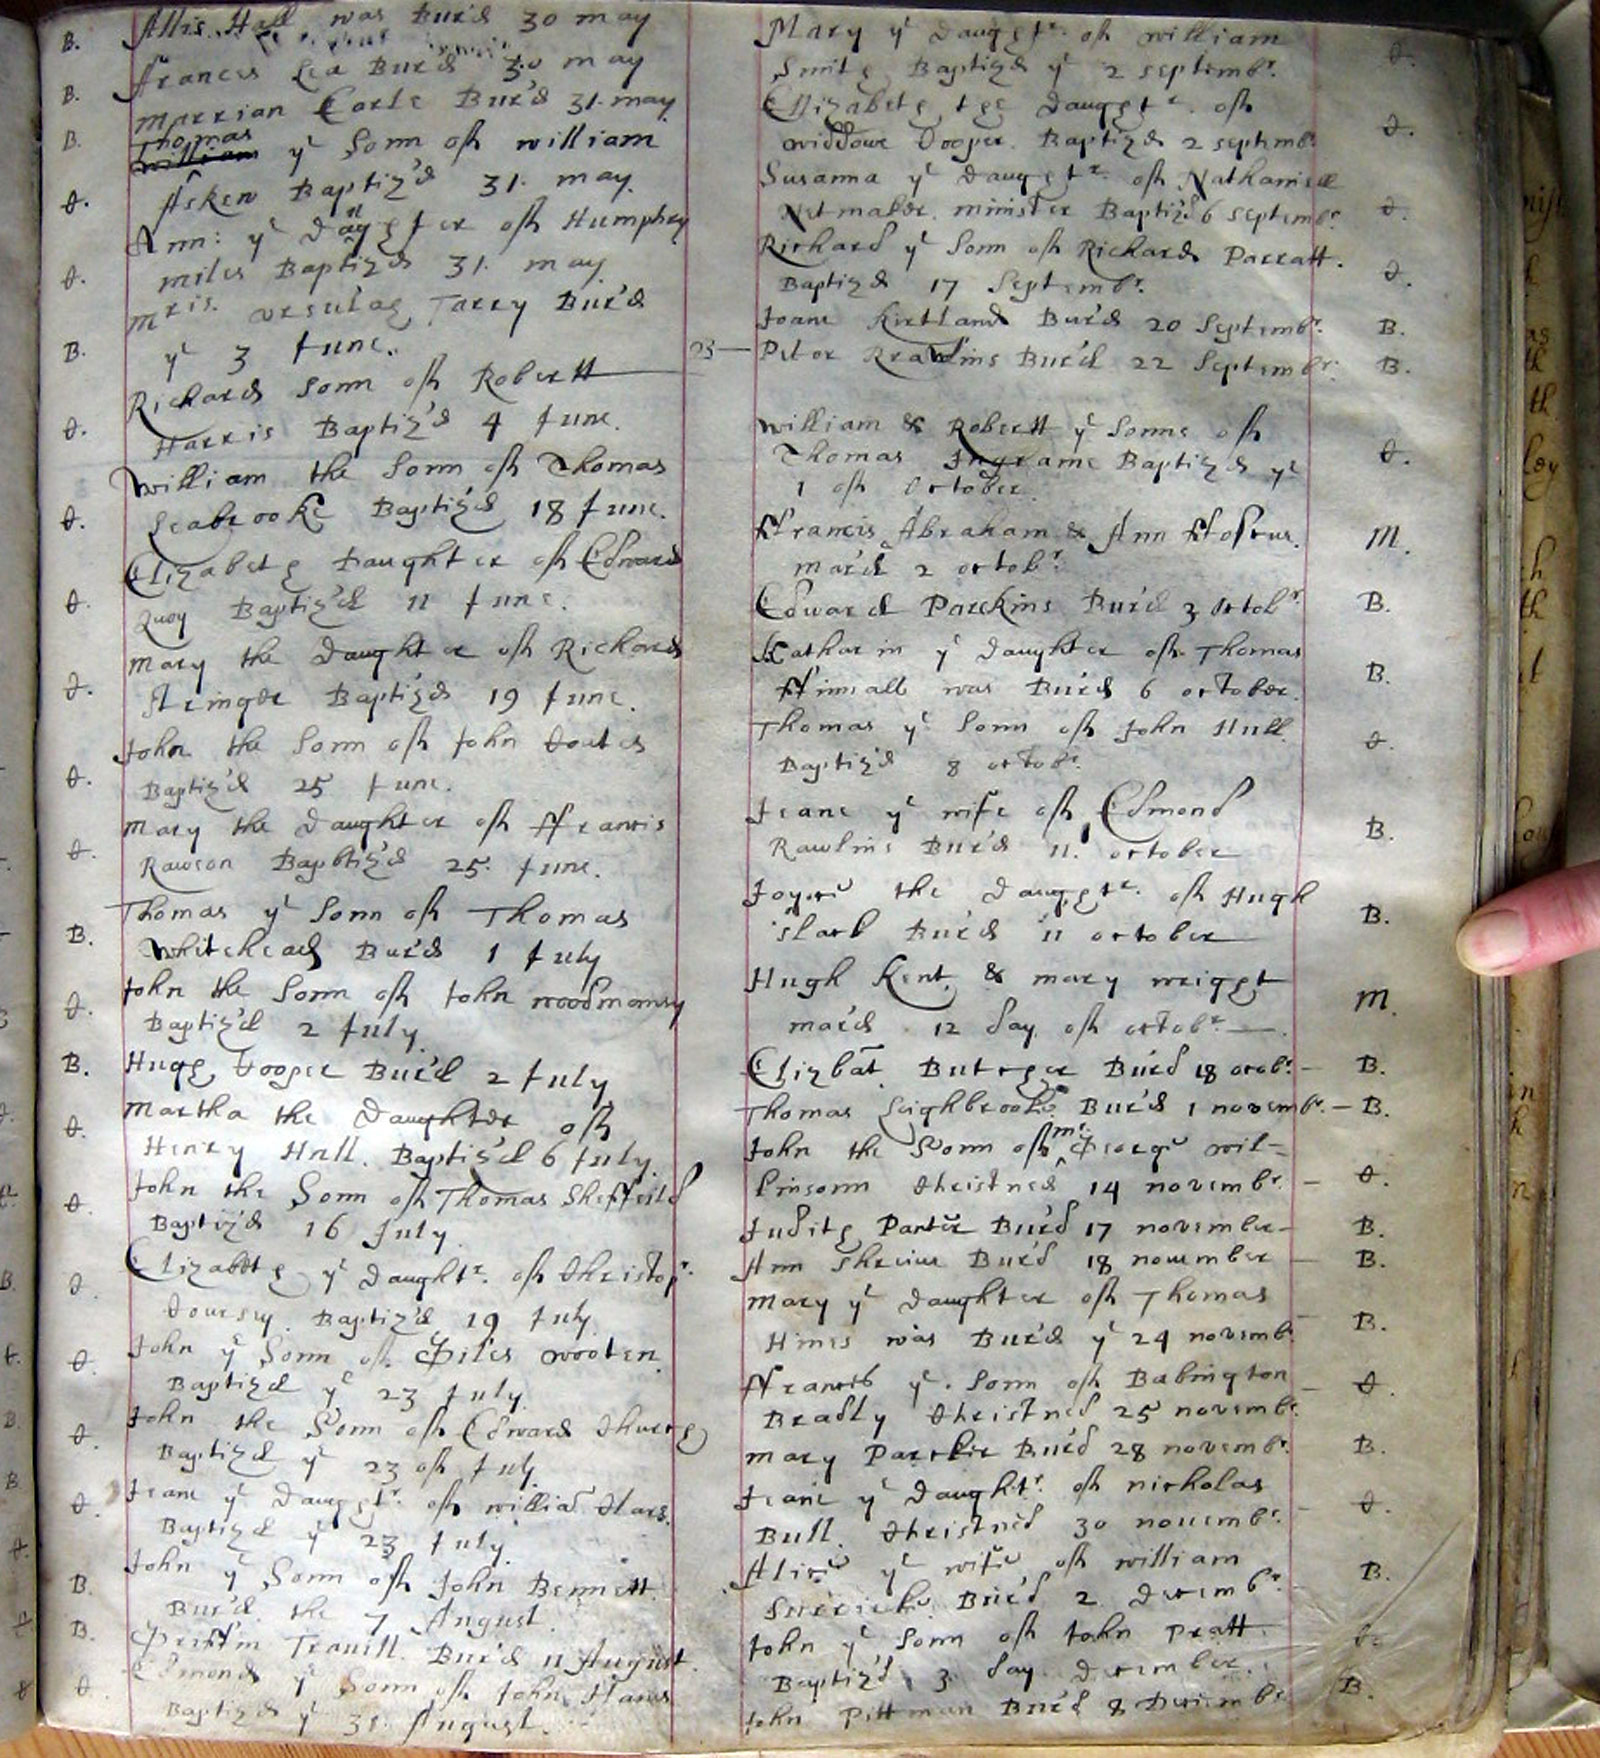 B. Allis Hall was Bur'd 30 may
B. ffrances Lea Bur'd 30 may
B. Marrian Earle Bur'd 31. may
Thomas
william yᵉ Sonn off william
C. Asken Baptiz'd 31. may.
Ann: yᵉ Daughter off Humphry
C. miles Baptizd 31. may.
Mʳⁱˢ. Ursulah Tarry Bur'd
B. yᵉ 3 June.
Richard Sonn off Robertt
C. Harris Baptiz'd 4 June.
William the Sonn off Thomas
C. Seabrooke Baptiz'd 18 June.
Elizabeth Daughter off Edward
C. Quoy Baptiz'd 11 June.
Mary the Daughter off Richard
C. Stringer Baptiz'd 19 June.
John the Sonn off John Coates
C. Baptiz'd 25 June.
Mary the Daughter off ffrancis
C. Rawson Baptiz'd 25. June.
Thomas yᵉ Sonn off Thomas
B. Whitehead Bur'd 1 July
John the Sonn off John woodmansy
C. Baptiz'd 2 July.
B. Hugh Cooper Bur'd 2 July
Martha the Daughter off
C. Henry Hall. Baptiz'd 6 July.
John the Sonn off Thomas Sheffeild
C. Baptiz'd 16 July.
Elizabeth yᵉ Daughtʳ. off Christopʳ.
C. Baptiz'd 19 July.
John yᵉ Sonn off Giles wooten
C. Baptizd yᵉ 23 July
John the Sonn off Edward Church
C. Baptizd yᵉ 23 off July.
Jeane yᵉ Daughtʳ. off william
C. Baptizd yᵉ 23 July
John yᵉ Sonn off John Bennett
B. Bur'd the 7 August.
B. Travill. Bur'd 11 August.
Edmond yᵉ Sonn off John
C. Baptizd yᵉ 31. August.
Mary yᵉ Daughtʳ. off william
Smith Baptizd yᵉ 2 septembʳ. C.
Elizabeth the Daughtʳ. off
widdow Cooper. Baptizd 2 septembʳ C.
Susanna yᵉ Daughtʳ. off Nathaniell
Netmaker. minister Baptizd 6 septembʳ. C.
Richard yᵉ Sonn off Richard Parratt.
Baptizd 17 Septembʳ. C.
Joane Kirtland Bur'd 20 Septembʳ. B.
Peter Rrawlins Bur'd 22 Septembʳ. B.
William & Robertt yᵉ Sonns off
Thomas Ingrame Baptizd yᵉ C.
1 off October.
ffrancis Abraham & Ann M.
mar'd 2 octobʳ.
Edward Parckins Bur'd 3 Octobʳ. B.
Katharin yᵉ Daughter off Thomas
was Bur'd 6 october. B.
Thomas yᵉ Sonn off John Hull.
Baptiz'd 8 octobʳ. C.
Jeane yᵉ wife off Edmond
Rawlins Bur'd 11. october B.
Joyce the Daughtʳ. off Hugh
Slack Bur'd 11 october B.
Hugh Kent & mary wright
mar'd 12 day off octobʳ. M.
Elizbāt. Butcher Bur'd 18 ocobʳ. B.
Thomas Leighbrooke Bur'd 1 novembʳ. B.
John the Sonn off mʳ. George wil=
kinsonn Christned 14 novembʳ. C.
Judith Parter Bur'd 17 november B.
Ann Bur'd 18 november B.
Mary yᵉ Daughter off Thomas
Hines was Bur'd yᵉ 24 novembʳ B.
ffrancis yᵉ. Sonn off Babington C.
Bradly Christned 25 novembʳ.
Mary Parckir Bur'd 28 novembʳ. B.
Jeane yᵉ Daughtʳ. off nicholas
Bull. Christned 30 novembʳ. C.
Alice yᵉ wife off william B.
Bur'd 2. Decembʳ.
John yᵉ Sonn off John Pratt C.
Baptiz'd 3 day December.
John Pittman Bur'd 8 Decembʳ B.